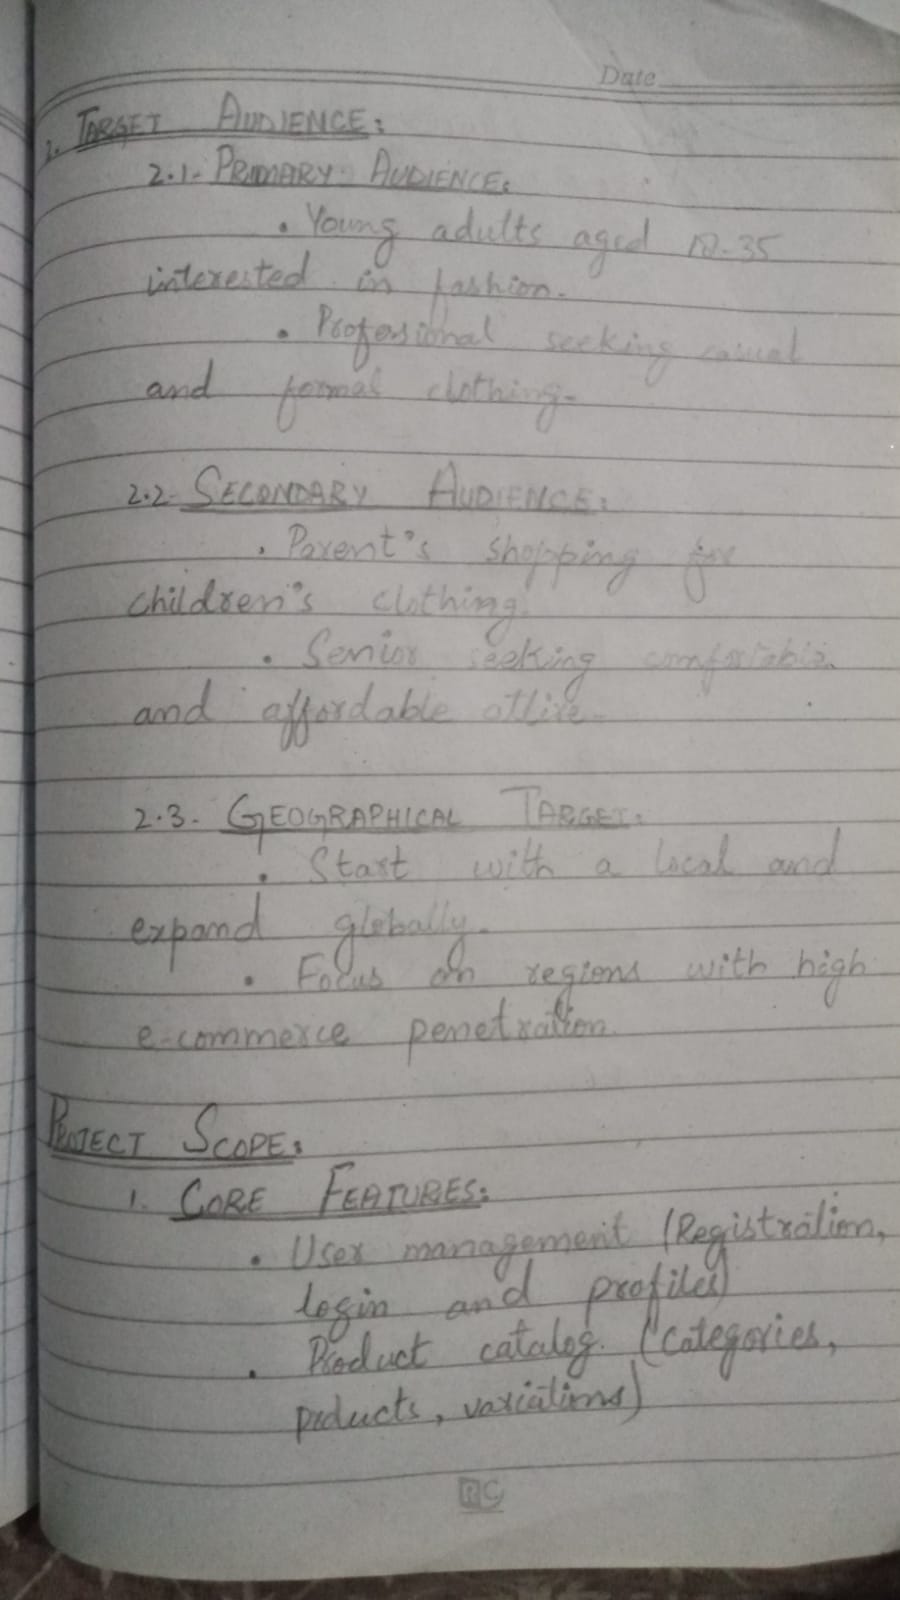 Date
2. TARGET AUDIENCE:
2.1- PRIMARY AUDIENCE:
• Young adults aged 18-35
interested in fashion.
• Professional seeking casual
and formal clothing.
2.2- SECONDARY AUDIENCE:
• Parent's shopping for
children's clothing.
• Senior seeking comfortable
and affordable attire.
2.3- GEOGRAPHICAL TARGET:
• Start with a local and
expand globally.
• Focus on regions with high
e-commerce penetration
PROJECT SCOPE:
1. CORE FEATURES:
• User management (Registration,
login and profiles)
• Product catalog. (Categories,
poducts, variations)
RC